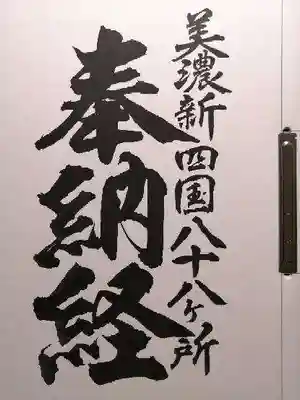 美濃新四国八十八ヶ所
奉納経